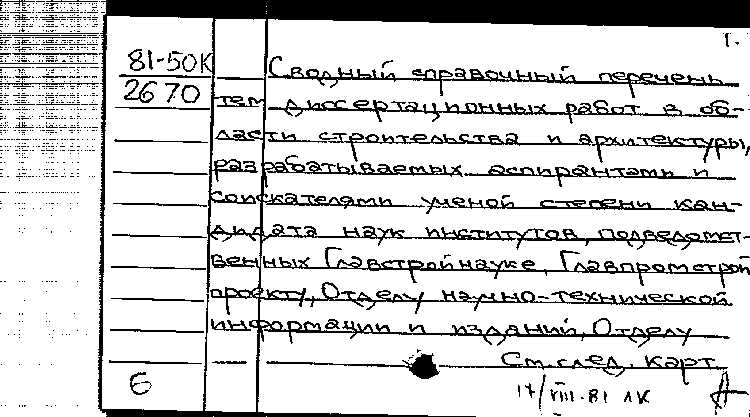 1.
81-50К
2670
Сводный справочный перечень
тем диссертационных работ в об-
ласти строительства и архитектуры,
разрабатываемых аспирантами и
соискателями ученой степени кан-
дидата наук институтов, подведомст-
венных Главстройнауке, Главпромстрой
проекту, Отделу научно-технической
информации и изданий, Отделу
См. след. карт.
6
17/VIII-81 ЛК